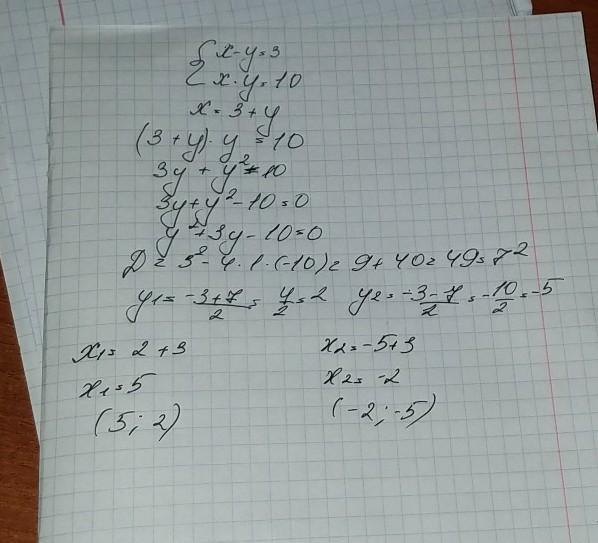 { x-y=3
x·y=10
x=3+y
(3+y)·y=10
3y+y²=10
3y+y²-10=0
y²+3y-10=0
D=3²-4·1·(-10)=9+40=49=7²
y₁=(-3+7)/2=4/2=2 y₂=(-3-7)/2=-10/2=-5
x₁=2+3 x₂=-5+3
x₁=5 x₂=-2
(5;2) (-2;-5)